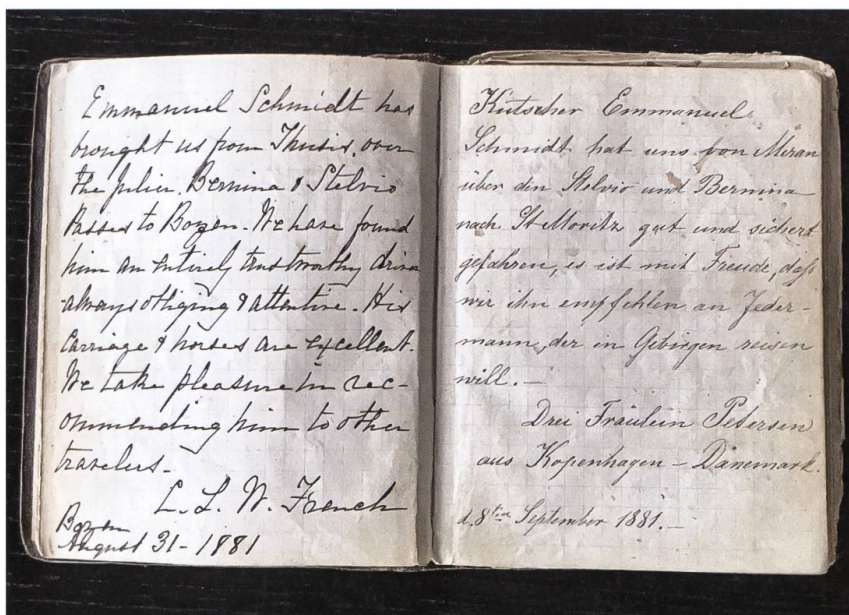 Emmanuel Schmidt has
brought us from Thusis, over
the Julier, Bernina & Stelvio
Passes to Bozen. We have found
him an entirely trustworthy driver
always obliging & attentive. His
carriage & horses are excellent.
We take pleasure in rec-
ommending him to other
travelers.
L. L. W. French
Bozen
August 31 - 1881
Kutscher Emmanuel
Schmidt hat uns von Meran
über den Stelvio und Bernina
nach St Moritz gut und sichert
gefahren, es ist mit Freude, daß
wir ihn empfehlen an Jeder-
mann, der in Gebirgen reisen
will. —
Drei Fräulein Petersen
aus Kopenhagen - Dänemark.
d. 8ten September 1881. —